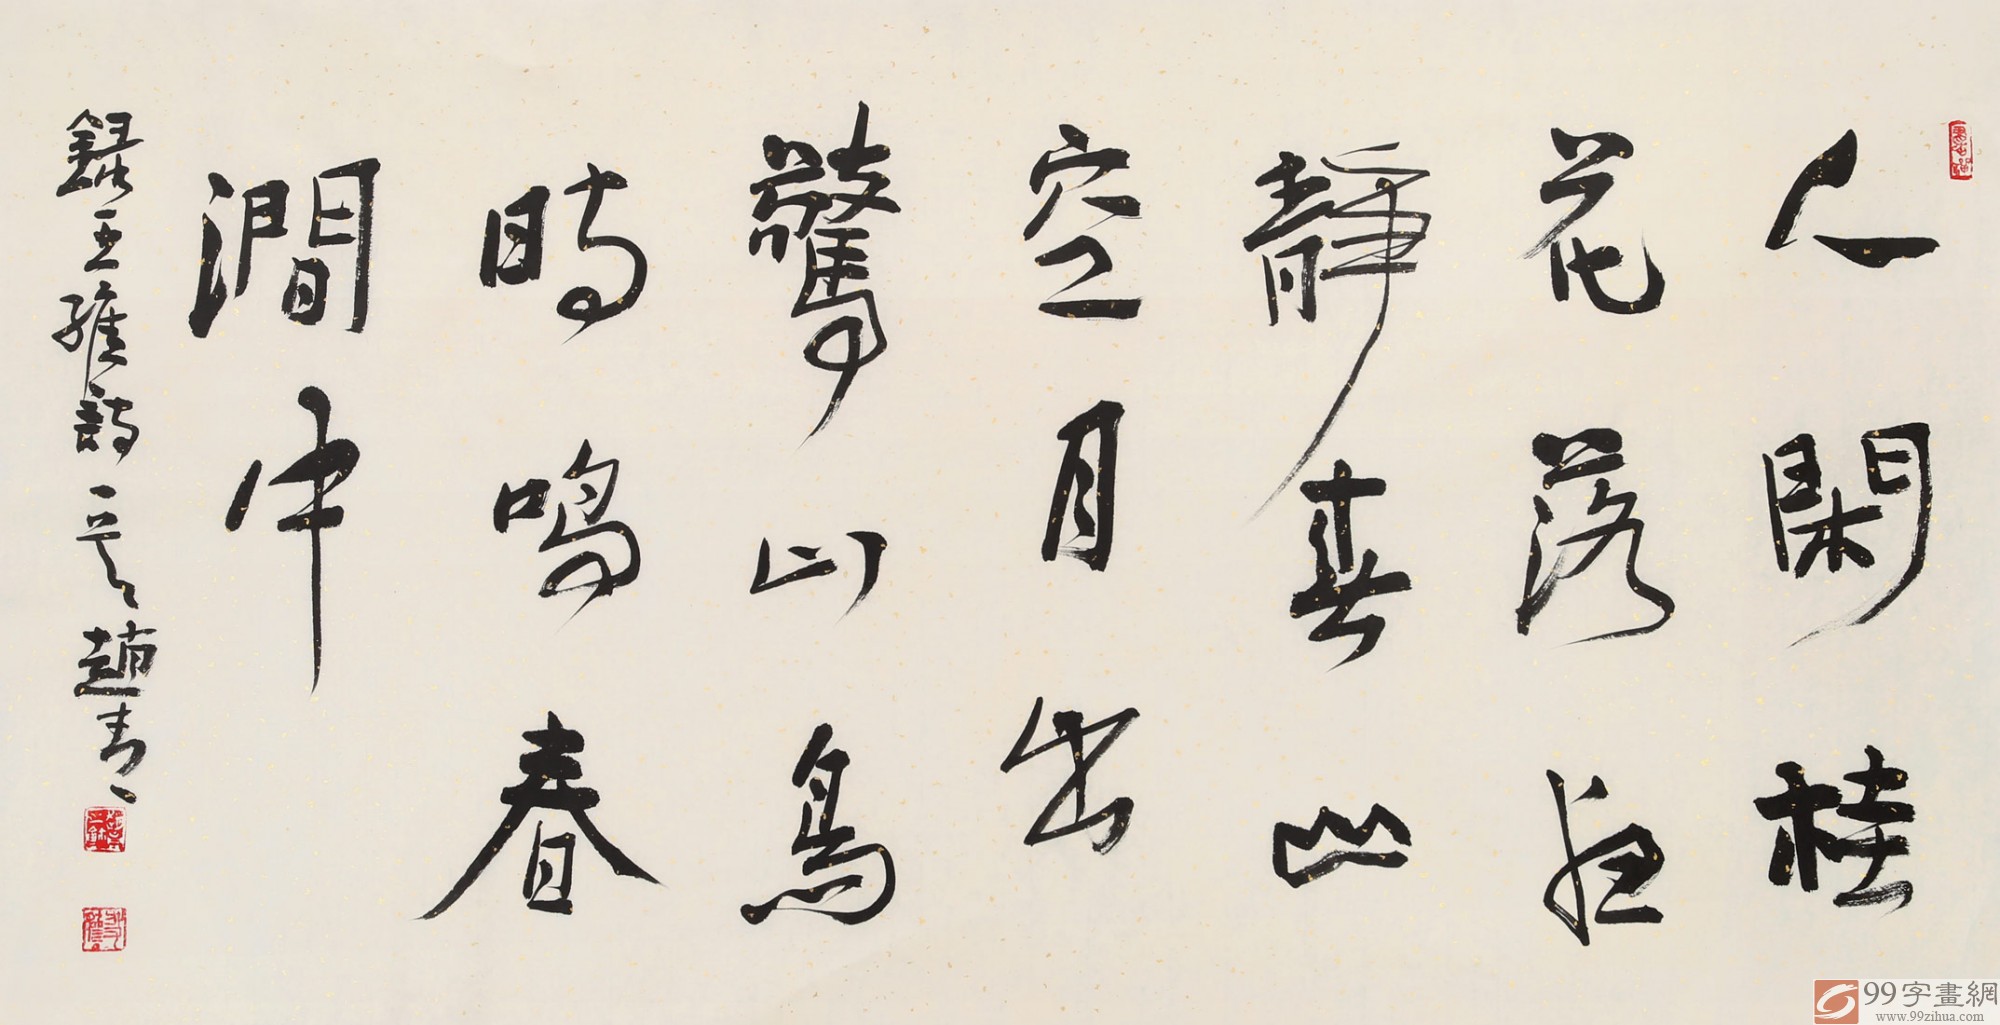 人閑桂
花落夜
靜春山
空月出
驚山鳥
時鳴春
澗中
錄王維詩一首趙青
99字畫網
www.99zihua.com